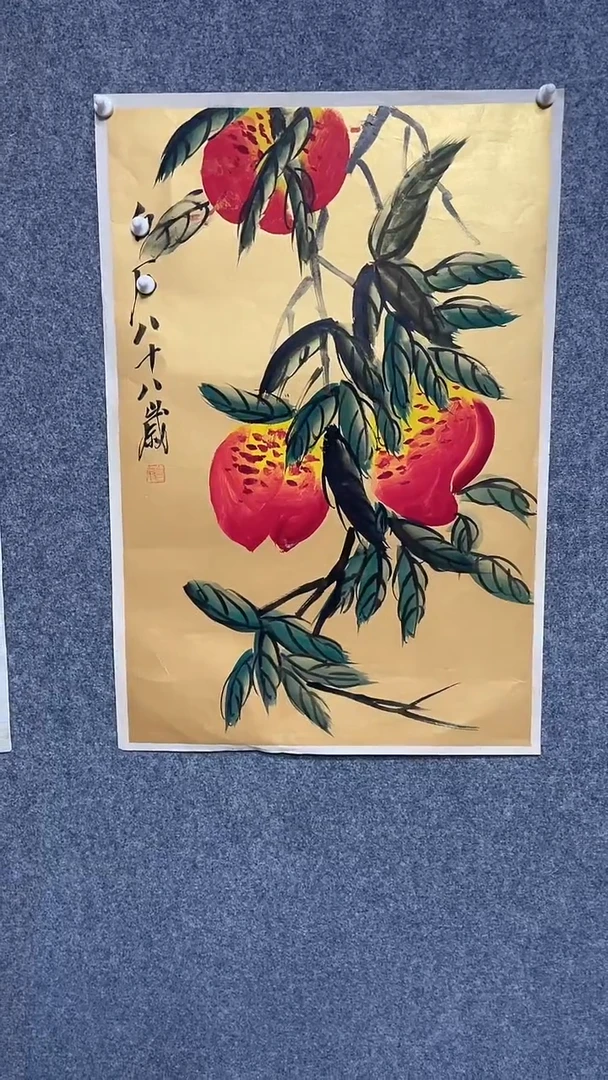 白石八十八歲